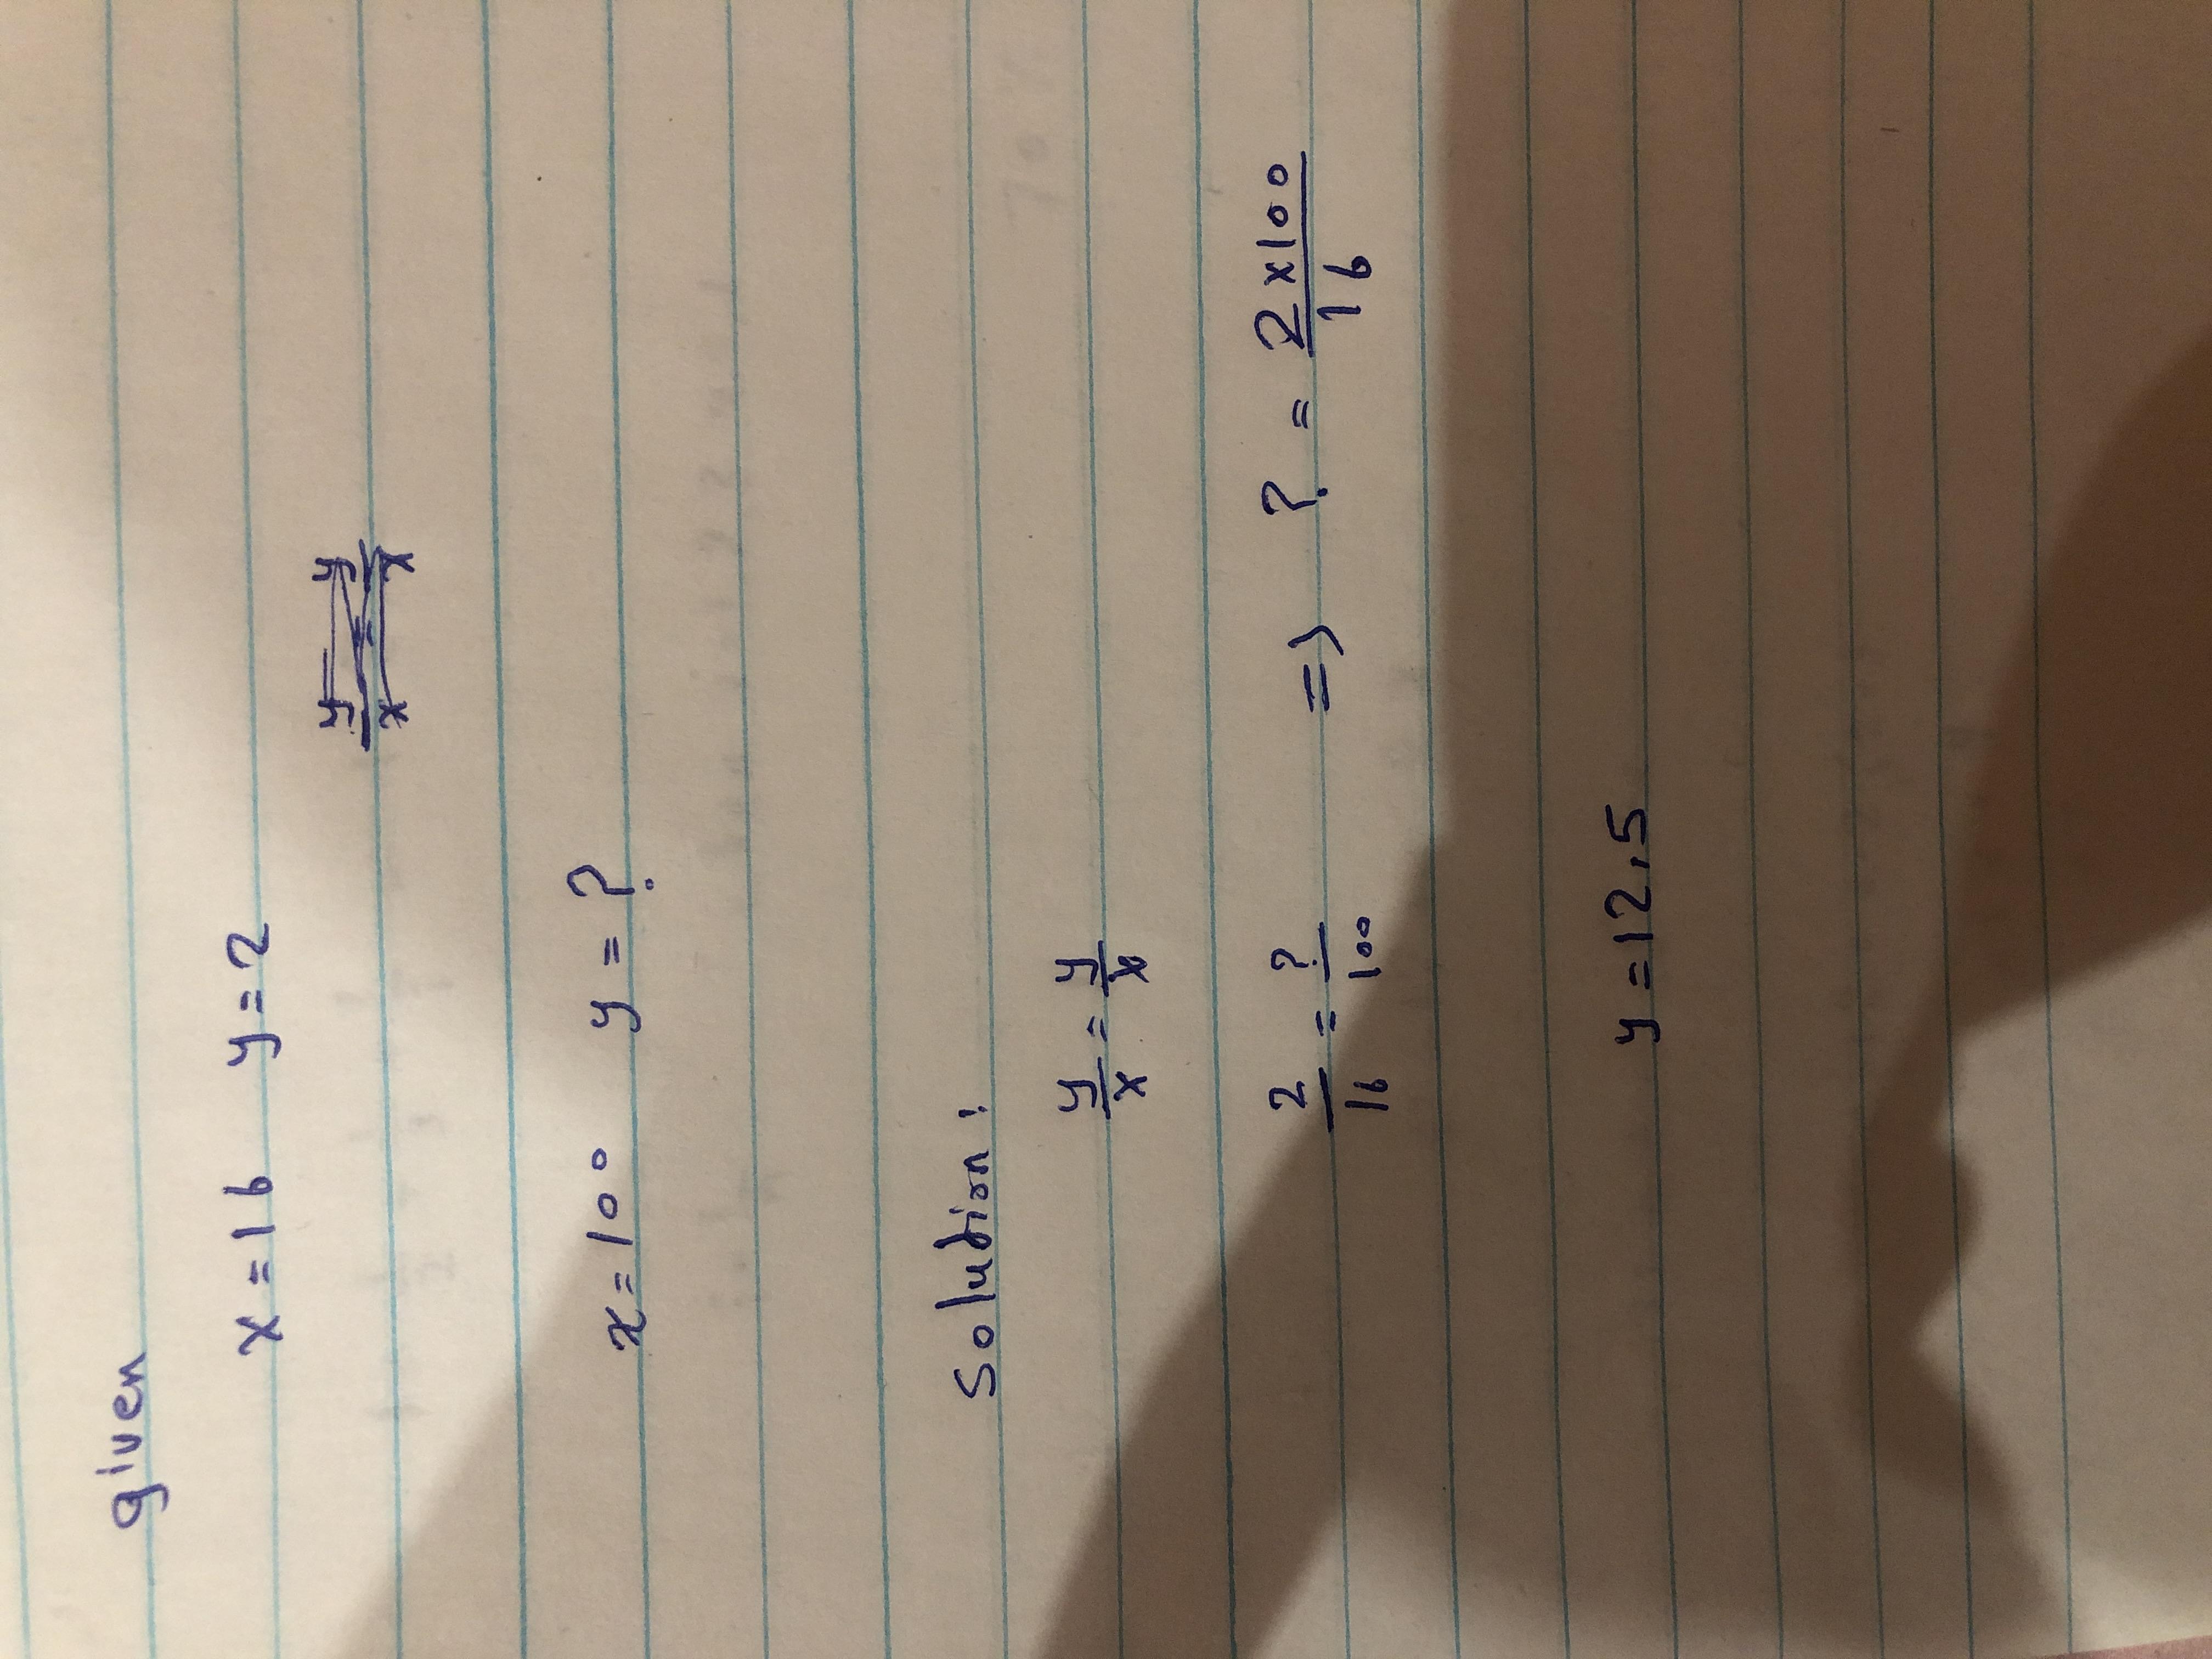 given
x = 16 y = 2
x = 100 y = ?
Solution :
y/x = y/x
2/16 = ?/100 => ? = 2 x 100/16
y = 12,5